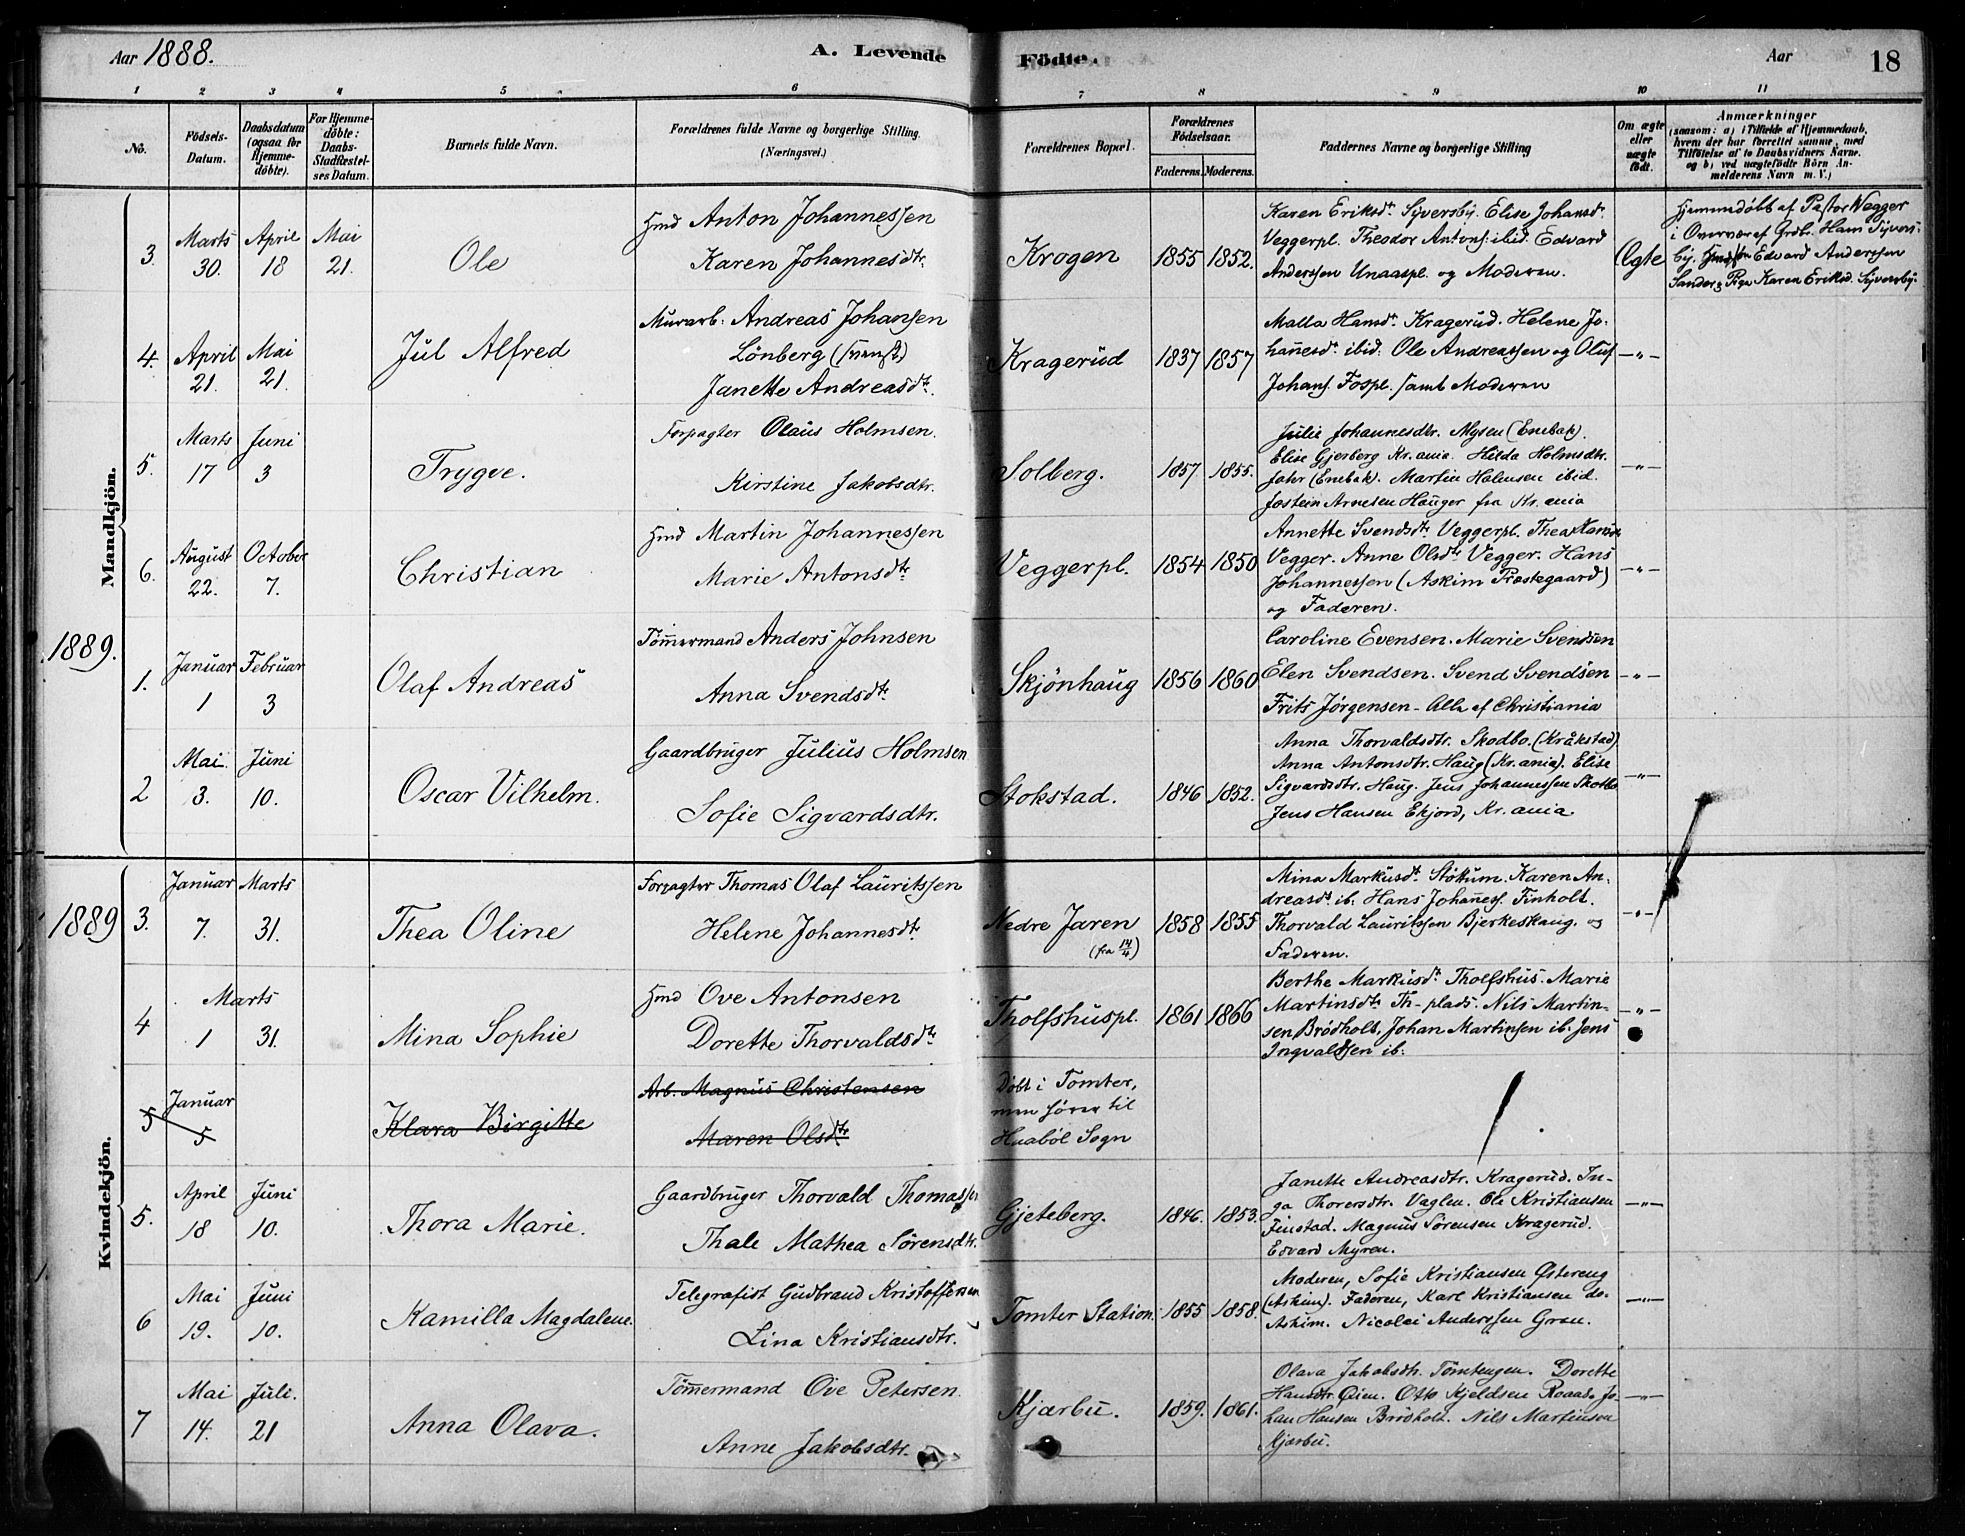 Aar 1888.
A. Levende
Födte.
Aar
18
1 2 3 4 5 6 7 8 9 10 11
No.
Födsels-
Datum.
Daabsdatum
(ogsaa for
Hjemme-
döbte).
For Hjemme-
döbte:
Daabs-
Stadfæstel-
ses Datum.
Barnets fulde Navn.
Forældrenes fulde Navne og borgerlige Stilling.
(Næringsvei.)
Forældrenes Bopæl.
Forældrenes
Födselsaar.
Faderens. Moderens.
Faddernes Navne og borgerlige Stilling
Om ægte
eller
uægte
födt.
Anmærkninger
(saasom: a) i Tilfælde af Hjemmedaab,
hvem der har forrettet samme, med
Tilföielse af to Daabsvidners Navne.
og b) ved uægtefödte Börn An-
melderens Navn m. V.)
Mandkjön.
3.
Marts
30.
April
18
Mai
21.
Ole
Hmd Anton Johannessen
Karen Johannesdtr.
Krogen
1855 1852.
Karen Eriksdtr. Syversby. Elise Johansdtr.
Veggerpl. Theodor Antons: ibid. Edvard
Anderssen Unaaspl. og Moderen.
Ægte
Hjemmedøbt af Pastor Vegger
i Overvær af Grdbr. Hans Syvers-
by. Edvard Anderssen
Sander & Pige Karen Eriksd. Syversby.
4.
April
21.
Mai
21.
Jul Alfred
Murarb: Andreas Johansen
Lönberg (svensk)
Janette Andreasdtr.
Kragerud
1837 1857
Malla Hansdtr. Kragerud. Helene Jo-
hanesdtr. ibid: Ole Andreassen og Oluf
Johans. Fospl. samt Moderen
—"—
5.
Marts
17
Juni
3
Trygve.
Forpagter Olaus Holmsen.
Kirstine Jakobsdtr.
Solberg.
1857 1855.
Julie Johannesdtr. Mysen (Enebak).
Elise Gjerberg Kr.ania. Hilda Holmsdtr.
Jahr (Enebak). Martin Holmsen ibid.
Jostein Arnesen Hauger fra Kr.ania
—"—
6.
August
22.
October
7.
Christian
Hmd Martin Johannessen
Marie Antonsdtr.
Veggerpl.
1854 1850
Annette Svendsdtr. Veggerpl. Thea Hansdtr.
Vegger. Anne Olsdtr. Vegger. Hans
Johannessen (Askim Præstegaard)
og Faderen.
—"—
1889.
1.
Januar
1
Februar
3
Olaf Andreas
Tömmermand Anders Johnsen
Anna Svendsdtr.
Skjönhaug
1856 1860
Caroline Evensen. Marie Svendsen
Elen Svendsen. Svend Svendsen
Frits Jørgensen - Alle af Christiania
—"—
2
Mai.
3.
Juni
10.
Oscar Vilhelm.
Gaardbruger Julius Holmsen
Sofie Sigvardsdtr.
Stokstad.
1846 1852.
Anna Thorvaldsdtr. Skodbo. (Kråkstad)
Anna Antonsdtr. Haug (Kr.ania). Elise
Sigvardsdtr. Haug. Jens Johannessen Skotbo
Jens Hansen Ekjord, Kr.ania.
—"—
Kvindekjön.
1889
3.
Januar
7.
Marts
31.
Thea Oline
Forpagter Thomas Olaf Lauritssen
Helene Johannesdtr.
Nedre Jaren
(fra 14/4)
1858 1855
Mina Markusdtr. Stökum. Karen An-
dreasdtr. ib: Hans Johaness. Finholt.
Thorvald Lauritssen Bjerkeskaug. og
Faderen.
—"—
4
Marts
1
31.
Mina Sophie
Hmd Ove Antonsen
Dorette Thorvaldsdtr.
Tholfshuspl.
1861 1866
Berthe Markusdtr. Tholfshus. Marie
Martinsdtr. Th-plads. Nils Martin-
sen Brödholt. Johan Martinsen ib: Jens
Ingvaldsen ib:
—"—
5
Januar
5
Klara Birgitte
Arb. Magnus Christensen
Maren Olsdtr.
Döbt i Tomter,
men hører til
Haaböl Sogn
5.
April
18
Juni
10.
Thora Marie.
Gaardbruger Thorvald Thomassen
Thale Mathea Sörensdtr.
Gjeteberg.
1846. 1853.
Janette Andreasdtr. Kragerud. In-
ga Thorersdtr. Vaglen. Ole Kristiansen
Finstad. Magnus Sörensen Kragerud.
Edvard Myren.
—"—
6
Mai
19.
Juni
10.
Kamilla Magdalene.
Telegrafist Gudbrand Kristoffersen
Lina Kristiansdtr.
Tomter Station.
1855 1858.
Moderen, Sofie Kristiansen Østereng
(Askim). Faderen, Karl Kristiansen do.
Askim. Nicolai Anderssen Gran.
—"—
7
Mai
14.
Juli.
21
Anna Olava.
Tömmermand Ove Petersen.
Anne Jakobsdtr.
Kjærbu.
1859. 1861.
Olava Jakobsdtr. Tomtengen. Dorette
Hansdtr. Øien. Otto Kjeldsen Raaas. Jo-
han Hansen Brödholt. Nils Martinsen
Kjærbu.
—"—